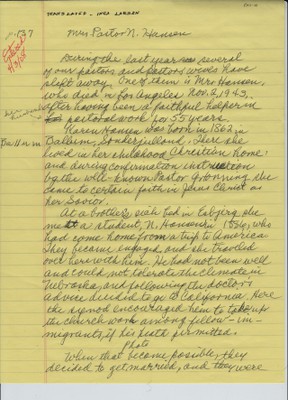 TRANSLATED - INGA LARSEN
p. 137
Mrs Pastor N. Hansen
During the last year several
of our pastors and pastors wives have
slept away. One of them is Mrs Hansen,
who died in Los Angeles Nov. 2, 1943,
after having been a faithful helper in
pastoral work for 55 years.
Karen Hansen was born in 1862 in
Ballum
Ballum, Sonderjylland. Here she
lived in her childhood Christian home
and during confirmation instruction
by the well-known Pastor she
came to certain faith in Jesus Christ as
her Savior.
At a brother's sick bed in Esbjerg she
met a student, N. Hansen in 1886, who
had come home from a trip to America
They became engaged, and she traveled
over here with him. He had not been well
and could not tolerate the climate in
Nebraska, and following the doctors
advice decided to go to California. Here
the synod encouraged him to take up
the church work among fellow-im-
migrants, if his health permitted.
photo
When that became possible, they
decided to get married, and they were